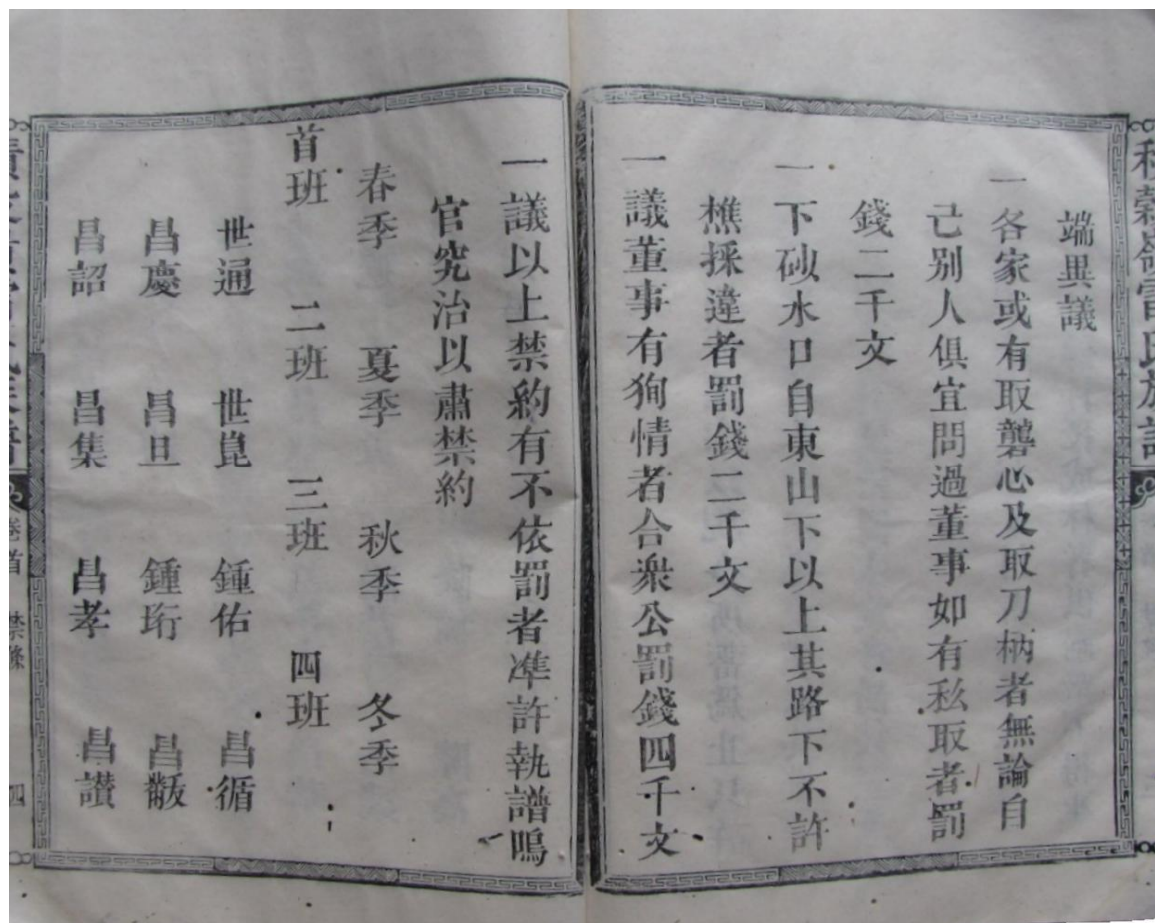 端異議
一各家或有取礱心及取刀柄者無論自
己別人俱宜問過董事如有私取者罰
錢二千文
一下砂水口自東山下以上其路下不許
樵採違者罰錢二千文
一議董事有狥情者合衆公罰錢四千文
一議以上禁約有不依罰者凖許執譜鳴
官究治以肅禁約
春季 夏季 秋季 冬季
首班 二班 三班 四班
世通 世崑 鍾佑 昌循
昌慶 昌旦 鍾珩 昌黻
昌詔 昌集 昌孝 昌讃
卷首 禁條 四